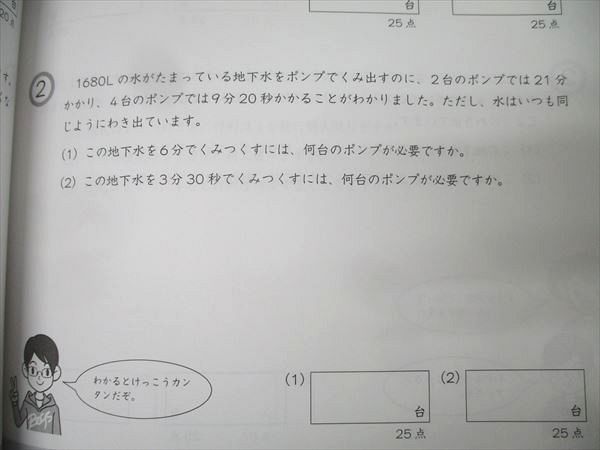 台
20点
台
台
25点
25点
2
1680Lの水がたまっている地下水をポンプでくみ出すのに、2台のポンプでは21分
かかり、4台のポンプでは9分20秒かかることがわかりました。ただし、水はいつも同
じようにわき出ています。
(1) この地下水を6分でくみつくすには、何台のポンプが必要ですか。
(2) この地下水を3分30秒でくみつくすには、何台のポンプが必要ですか。
わかるとけっこうカン
タンだぞ。
(1)
台
25点
(2)
台
25点